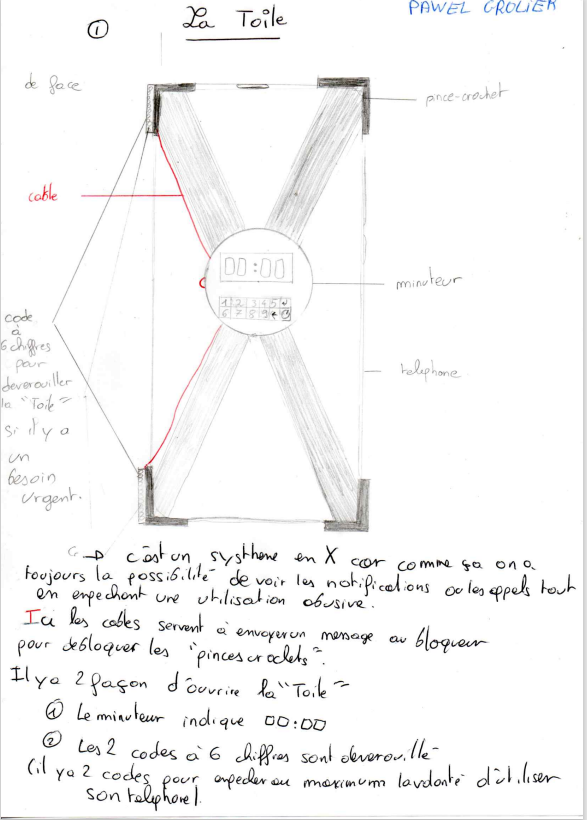 PAWEL GROLIER
① La Toile
de face
pince-crochet
cable
00:00
1 2 3 4 5
6 7 8 9
minuteur
code
à
6 chiffres
pour
deverouiller
la "Toile"
si il y a
un
besoin
urgent.
telephone
c'est un systheme en X car comme ça on a
toujours la possibilité de voir les notifications ou les appels tout
en enpechant une utilisation abusive.
Ici les cables servent à envoyer un message au bloqueur
pour debloquer les "pinces crochets".
Il y a 2 façon d'ouvrire la "Toile"
① Le minuteur indique 00:00
② Les 2 codes à 6 chiffres sont deverouillé
(il y a 2 codes pour enpecher au maximum la volonté d'utiliser
son telephone).